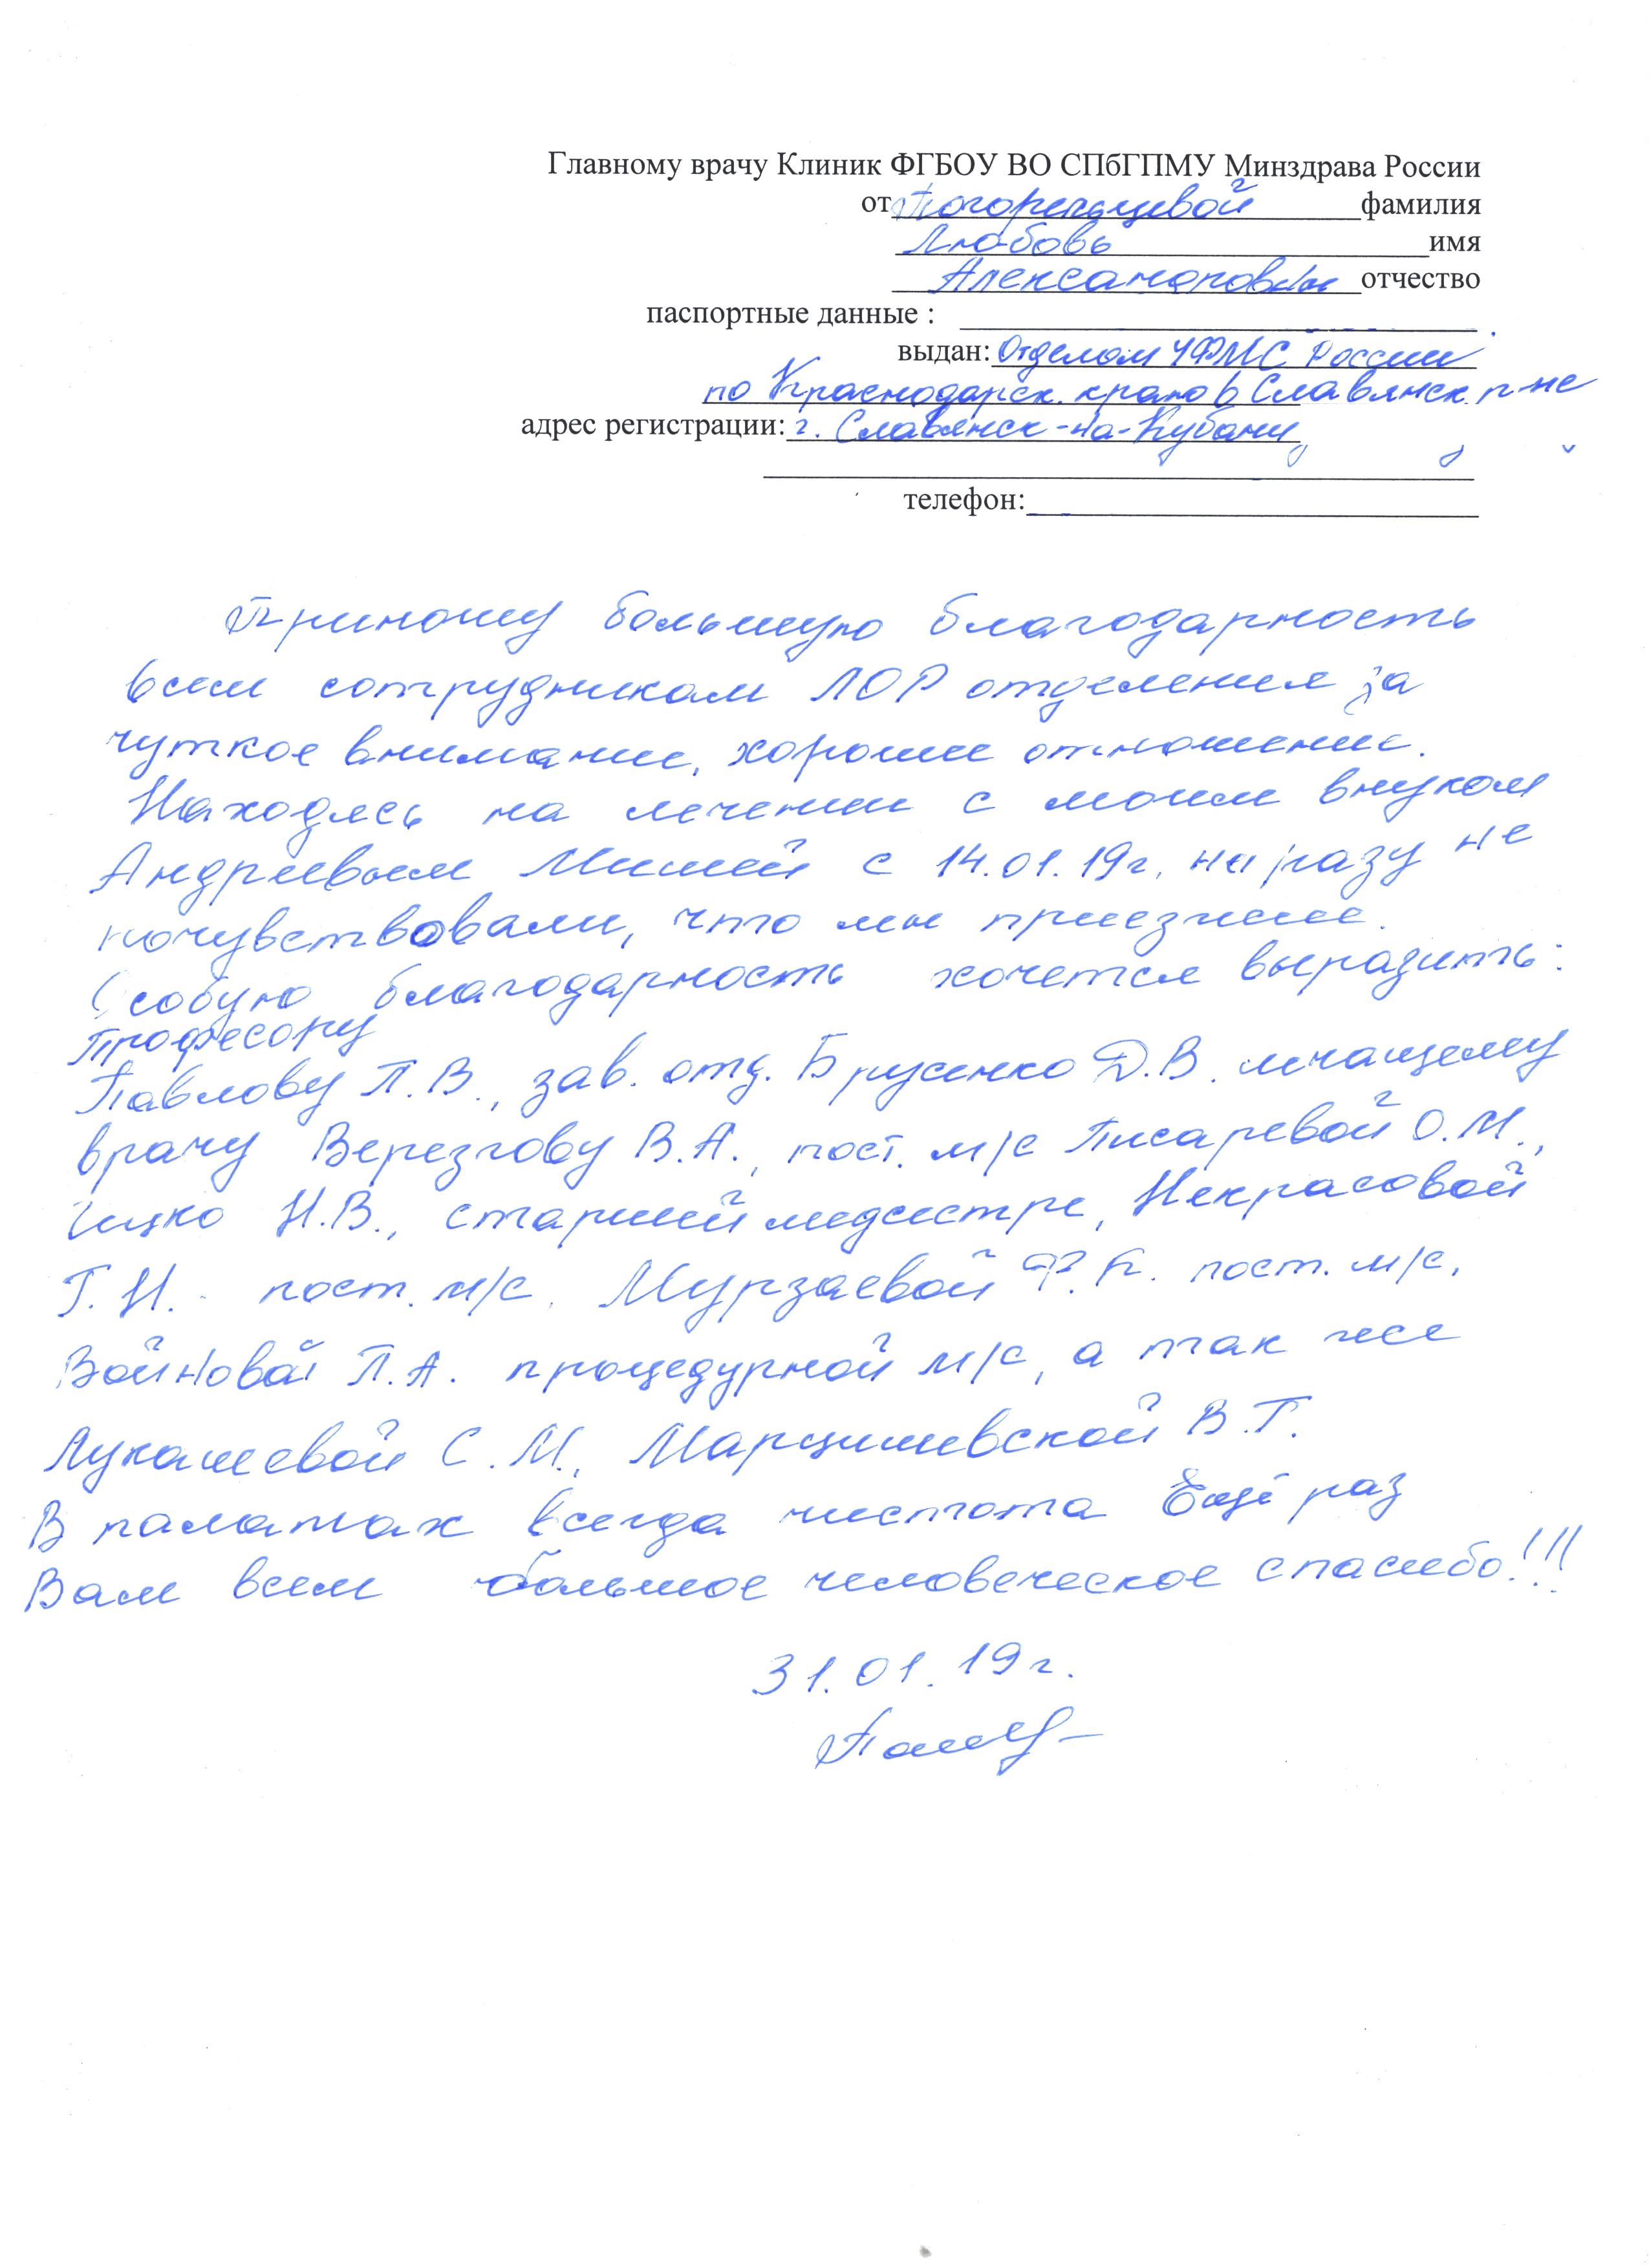 Главному врачу Клиник ФГБОУ ВО СПбГПМУ Минздрава России
от Погорельцевой фамилия
Любовь имя
Александровны отчество
паспортные данные :
выдан: Отделом УФМС России
по Краснодарск. краю в Славянск. р-не
адрес регистрации: г. Славянск-на-Кубани
телефон:
Приношу большую благодарность
всем сотрудникам ЛОР отделения за
чуткое внимание, хорошее отношение.
Находясь на лечении с моим внуком
Андреевым Мишей с 14.01.19г. ни разу не
почувствовали, что мы приезжие.
Особую благодарность хочется выразить:
Професору
Павлову П.В., зав. отд. Брусенко Д.В. лечащему
врачу Верезгову В.А., пост. м/с Писаревой О.М.,
Н.В., старшей медсестре, Некрасовой
Г.Н. пост. м/с. Мурзаевой пост. м/с,
Войновой Л.А. процедурной м/с, а так же
Лукашевой С.М., В.Г.
В палатах всегда чистота Ещё раз
Вам всем большое человеческое спасибо!!!
31.01.19г.